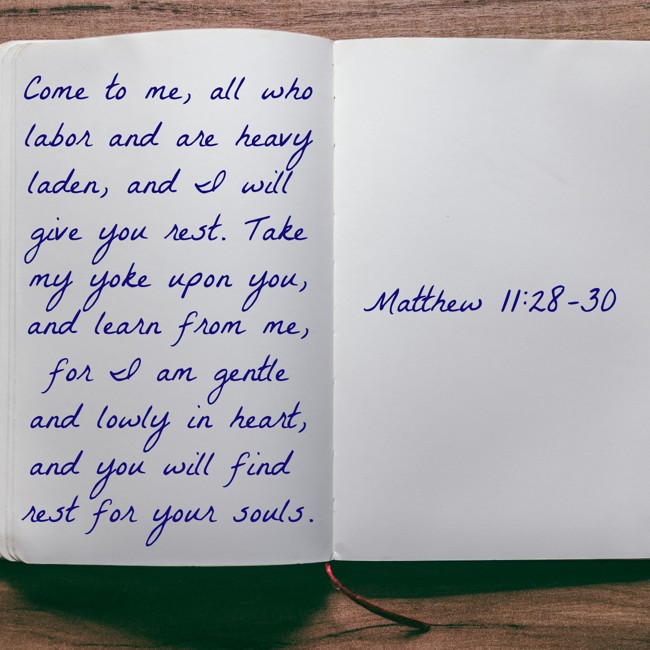 Come to me, all who
labor and are heavy
laden, and I will
give you rest. Take
my yoke upon you,
and learn from me,
for I am gentle
and lowly in heart,
and you will find
rest for your souls.
Matthew 11:28-30